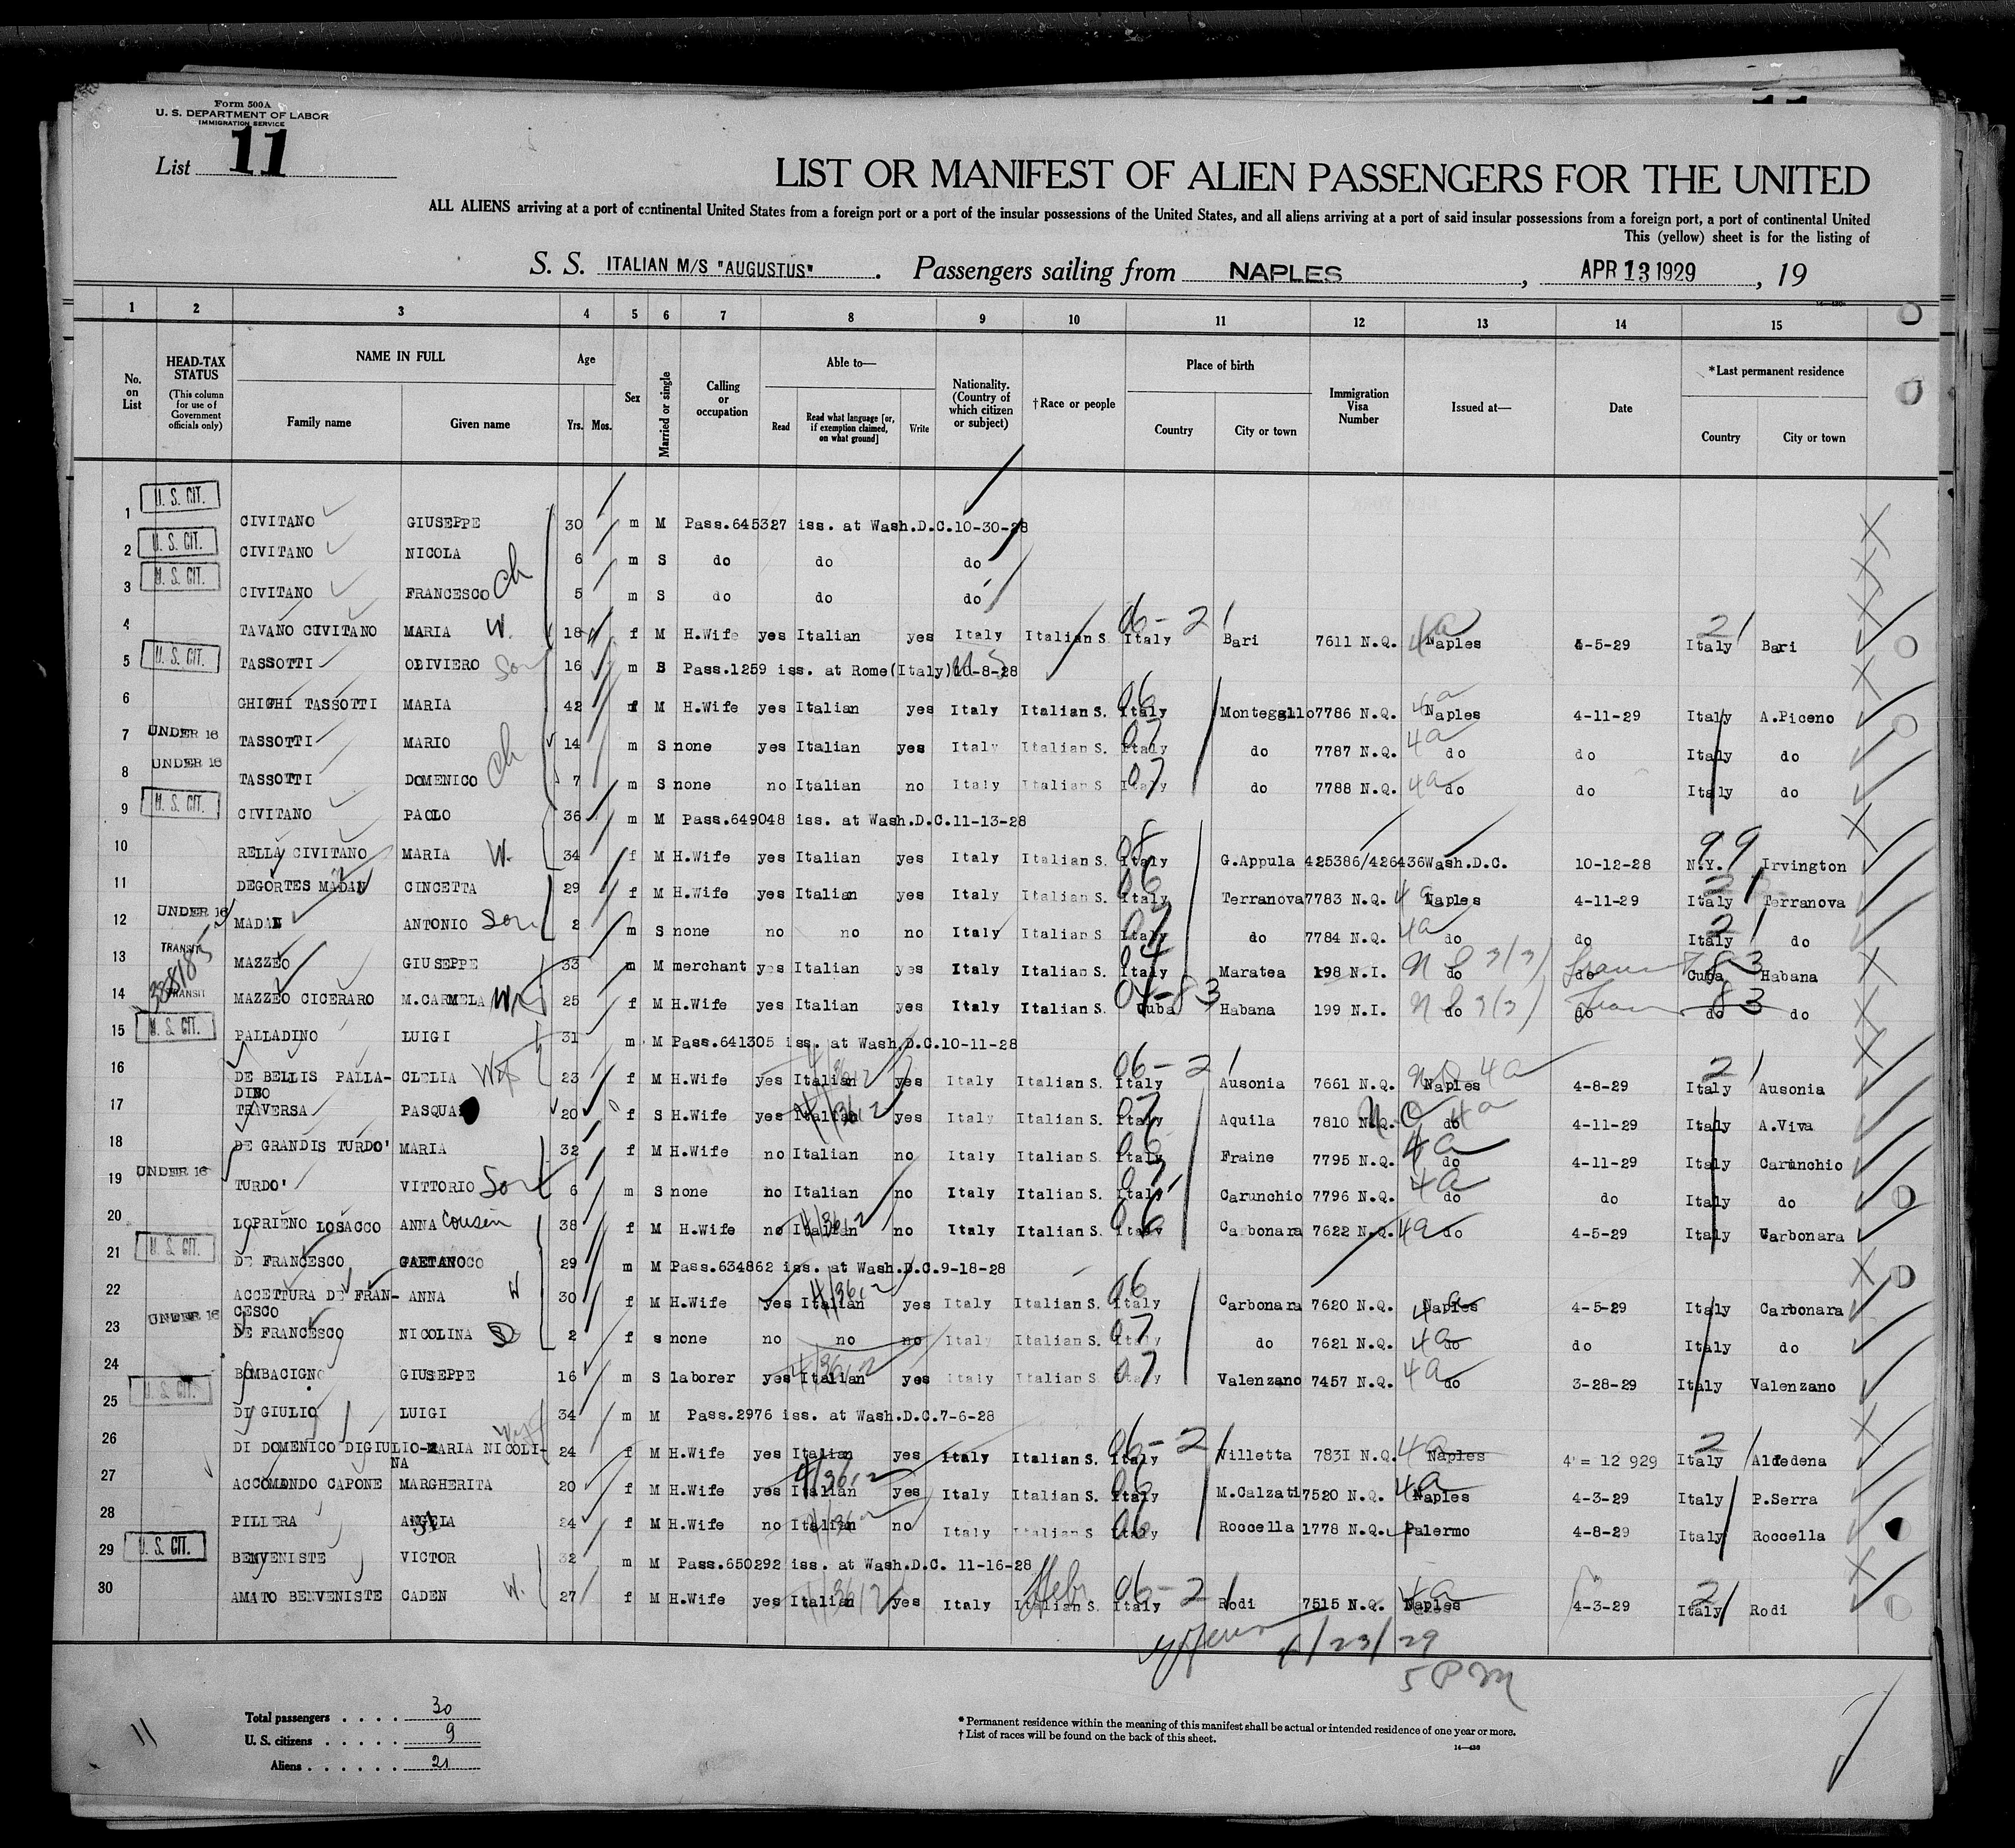 Form 500A
U. S. DEPARTMENT OF LABOR
IMMIGRATION SERVICE
List 11
LIST OR MANIFEST OF ALIEN PASSENGERS FOR THE UNITED
ALL ALIENS arriving at a port of continental United States from a foreign port or a port of the insular possessions of the United States, and all aliens arriving at a port of said insular possessions from a foreign port, a port of continental United
This (yellow) sheet is for the listing of
S. S. ITALIAN M/S "AUGUSTUS" . Passengers sailing from NAPLES , APR 13 1929 , 19
1 2 3 4 5 6 7 8 9 10 11 12 13 14 15
No. on List
HEAD-TAX STATUS
(This column for use of Government officials only)
NAME IN FULL
Family name Given name
Age
Yrs. Mos.
Sex
Married or single
Calling or occupation
Able to—
Read Read what language [or, if exemption claimed, on what ground] Write
Nationality. (Country of which citizen or subject)
†Race or people
Place of birth
Country City or town
Immigration Visa Number
Issued at—
Date
*Last permanent residence
Country City or town
1 U. S. CIT. CIVITANO GIUSEPPE 30 m M Pass.645327 iss. at Wash.D.C.10-30-28
2 U. S. CIT. CIVITANO NICOLA 6 m S do do do
3 U. S. CIT. CIVITANO FRANCESCO ch 5 m S do do do
4 TAVANO CIVITANO MARIA W. 18 f M H.Wife yes Italian yes Italy Italian S. Italy 06-2 Bari 7611 N.Q. 4a Naples 4-5-29 Italy 2 Bari
5 U. S. CIT. TASSOTTI OBIVIERO Son 16 m S Pass.1259 iss. at Rome(Italy)10-8-28
6 GHIGHI TASSOTTI MARIA 42 f M H.Wife yes Italian yes Italy Italian S. Italy 06 Montegallo 7786 N.Q. 4a Naples 4-11-29 Italy A.Piceno
7 UNDER 16 TASSOTTI MARIO 14 m S none yes Italian yes Italy Italian S. Italy 07 do 7787 N.Q. 4a do do Italy do
8 UNDER 16 TASSOTTI DOMENICO ch 7 m S none no Italian no Italy Italian S Italy 07 do 7788 N.Q. 4a do do Italy do
9 U. S. CIT. CIVITANO PAOLO 36 m M Pass.649048 iss. at Wash.D.C.11-13-28
10 RELLA CIVITANO MARIA W. 34 f M H.Wife yes Italian yes Italy Italian S. Italy 08 G.Appula 425386/426436 Wash.D.C. 10-12-28 N.Y. 99 Irvington
11 DEGORTES MADAN CINCETTA 29 f M H.Wife yes Italian yes Italy Italian S. Italy 06 Terranova 7783 N.Q. 4a Naples 4-11-29 Italy 2 Terranova
12 UNDER 16 MADAN ANTONIO Son 2 m S none no no no Italy Italian S Italy 07 do 7784 N.Q. 4a do do Italy 2 do
13 TRANSIT MAZZEO GIUSEPPE 33 m M merchant yes Italian yes Italy Italian S. Italy 04 Maratea 198 N.I. do 3(3) do Cuba 83 Habana
14 38818 TRANSIT MAZZEO CICERARO M.CARMELA 25 f M H.Wife yes Italian yes Italy Italian S. Cuba 04-83 Habana 199 N.I. do 3(3) do do 83 do
15 U. S. CIT. PALLADINO LUIGI 31 m M Pass.641305 iss. at Wash.D.C.10-11-28
16 DE BELLIS PALLA- CLELIA Wife 23 f M H.Wife yes Italian yes Italy Italian S. Italy 06-2 Ausonia 7661 N.Q. NQ 4a Naples 4-8-29 Italy 2 Ausonia
DINO
17 TRAVERSA PASQUA 20 f S H.Wife yes Italian yes Italy Italian S. Italy 07 Aquila 7810 N.Q. NQ 4a do 4-11-29 Italy A.Viva
18 DE GRANDIS TURDO' MARIA 32 f M H.Wife no Italian no Italy Italian S. Italy 06 Fraine 7795 N.Q. 4a do 4-11-29 Italy Carunchio
19 UNDER 16 TURDO' VITTORIO Son 6 m S none no Italian no Italy Italian S. Italy 07 Carunchio 7796 N.Q. 4a do do Italy do
20 LOPRIENO LOSACCO ANNA Cousin 38 f M H.Wife no Italian no Italy Italian S. Italy 06 Carbonara 7622 N.Q. 4a do 4-5-29 Italy Carbonara
21 U. S. CIT. DE FRANCESCO GAETANO 29 m M Pass.634862 iss. at Wash.D.C.9-18-28
22 ACCETTURA DE FRAN- ANNA W 30 f M H.Wife yes Italian yes Italy Italian S. Italy 06 Carbonara 7620 N.Q. 4a Naples 4-5-29 Italy Carbonara
CESCO
23 UNDER 16 DE FRANCESCO NICOLINA D 2 f s none no no no Italy Italian S. Italy 07 do 7621 N.Q. 4a do do Italy do
24 BOMBACIGNO GIUSEPPE 16 m S laborer yes Italian yes Italy Italian S Italy 07 Valenzano 7457 N.Q. 4a do 3-28-29 Italy Valenzano
25 U. S. CIT. DI GIULIO LUIGI 34 m M Pass.2976 iss. at Wash.D.C.7-6-28
26 DI DOMENICO DIGIULIO-MARIA NICOLI- Wife 24 f M H.Wife yes Italian yes Italy Italian S. Italy 06-2 Villetta 7831 N.Q. 4a Naples 4 = 12 929 Italy 2 Alfedena
NA
27 ACCOMANDO CAPONE MARGHERITA 20 f M H.Wife yes Italian yes Italy Italian S. Italy 06 M.Calzati 7520 N.Q. 4a Naples 4-3-29 Italy P.Serra
28 PILLERA ANGELA 24 f M H.Wife no Italian no Italy Italian S Italy 06 Roccella 1778 N.Q. Palermo 4-8-29 Italy Roccella
29 U. S. CIT. BENVENISTE VICTOR 32 m M Pass.650292 iss. at Wash.D.C. 11-16-28
30 AMATO BENVENISTE CADEN W. 27 f M H.Wife yes Italian yes Italy Italian S. Hebr Italy 06-2 Rodi 7515 N.Q. 4a Naples 4-3-29 Italy 2 Rodi
4/23/29
5 PM
11
Total passengers . . . . 30
U. S. citizens . . . . . 9
Aliens . . . . . . 21
* Permanent residence within the meaning of this manifest shall be actual or intended residence of one year or more.
† List of races will be found on the back of this sheet.
14—430